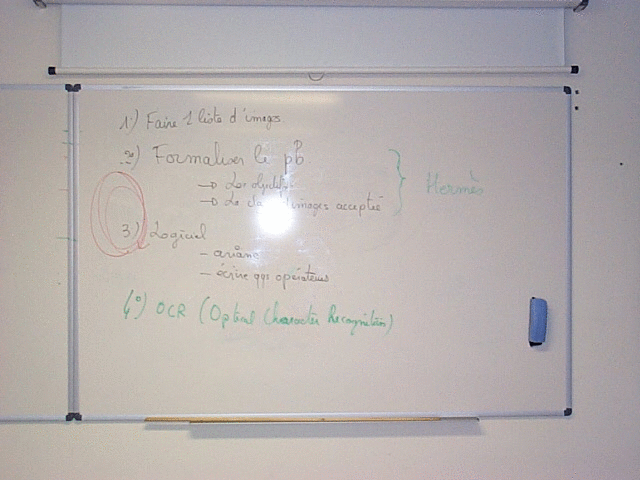 1°) Faire 1 liste d'images
2°) Formaliser le pb.
→ Les objectifs
→ La d'images accepté
Hermès
3) Logiciel
- ariane
- écrire qqs opérateurs
4°) OCR (Optical Character Recognition)